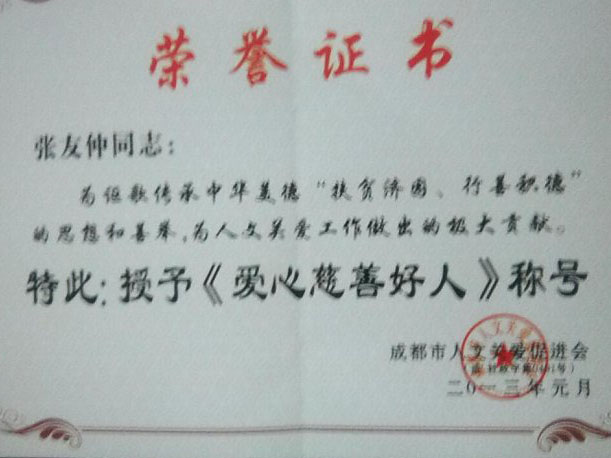 荣誉证书
张友仲同志：
为讴歌传承中华美德“扶贫济困、行善积德”
的思想和善举,为人文关爱工作做出的极大贡献。
特此:授予《爱心慈善好人》称号
成都市人文关爱促进会
二0一三年元月